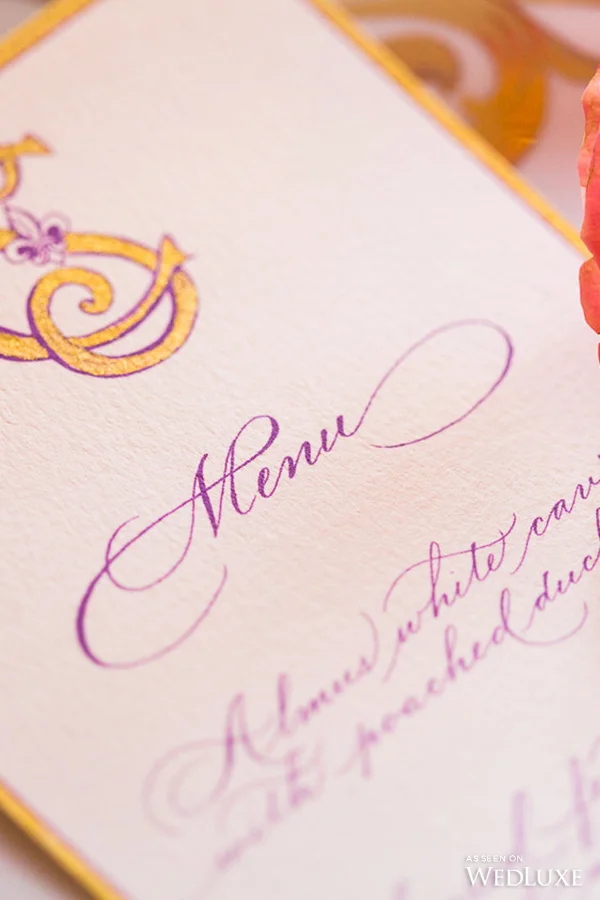 Menu
Almus white cavi
with poached duck
AS SEEN ON
WEDLUXE